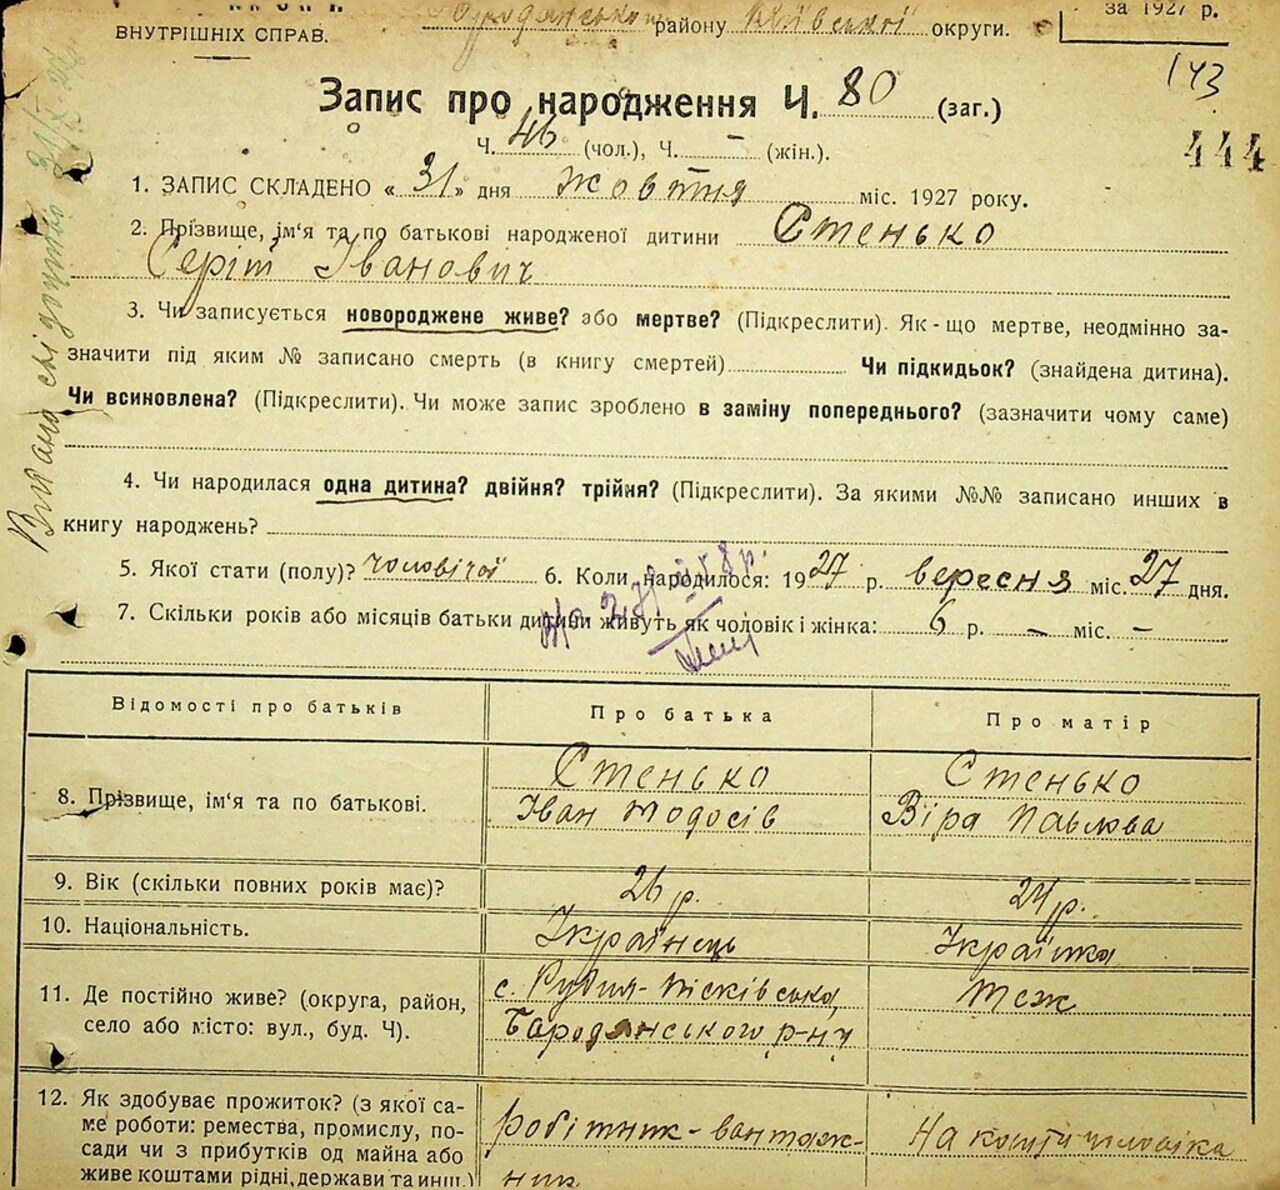 ВНУТРІШНІХ СПРАВ.
району Київської округи.
за 1927 р.
143
Запис про народження Ч. 80 (заг.)
Ч. 46 (чол.), Ч. – (жін.).
444
1. ЗАПИС СКЛАДЕНО « 31 » дня жовтня міс. 1927 року.
2. Прізвище, ім'я та по батькові народженої дитини Стенько
Сергій Іванович
3. Чи записується новороджене живе? або мертве? (Підкреслити). Як-що мертве, неодмінно за-
значити під яким № записано смерть (в книгу смертей) Чи підкидьок? (знайдена дитина).
Чи всиновлена? (Підкреслити). Чи може запис зроблено в заміну попереднього? (зазначити чому саме)
4. Чи народилася одна дитина? двійня? трійня? (Підкреслити). За якими №№ записано инших в
книгу народжень?
5. Якої стати (полу)? чоловічої 6. Коли народилося: 1927 р. вересня міс. 27 дня.
7. Скільки років або місяців батьки дитини живуть як чоловік і жінка: 6 р. – міс. –
Відомості про батьків Про батька Про матір
8. Прізвище, ім'я та по батькові.
Стенько
Іван Тодосів
Стенько
Віра Павлова
9. Вік (скільки повних років має)? 26 р. 24 р.
10. Національність. Українець Українка
11. Де постійно живе? (округа, район,
село або місто: вул., буд. Ч).
с. Рудня-Пісківська
Бородянського р-ну
теж
12. Як здобуває прожиток? (з якої са-
ме роботи: ремества, промислу, по-
сади чи з прибутків од майна або
живе коштами рідні, держави та инш.)
робітник-вантаж-
ник
На кошти чоловіка